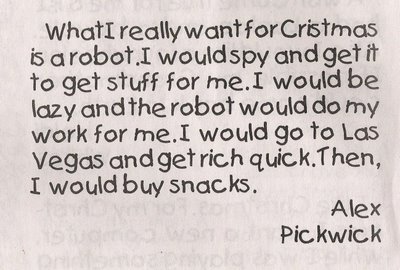 What I really want for Cristmas
is a robot. I would spy and get it
to get stuff for me. I would be
lazy and the robot would do my
work for me. I would go to Las
Vegas and get rich quick. Then,
I would buy snacks.
Alex
Pickwick